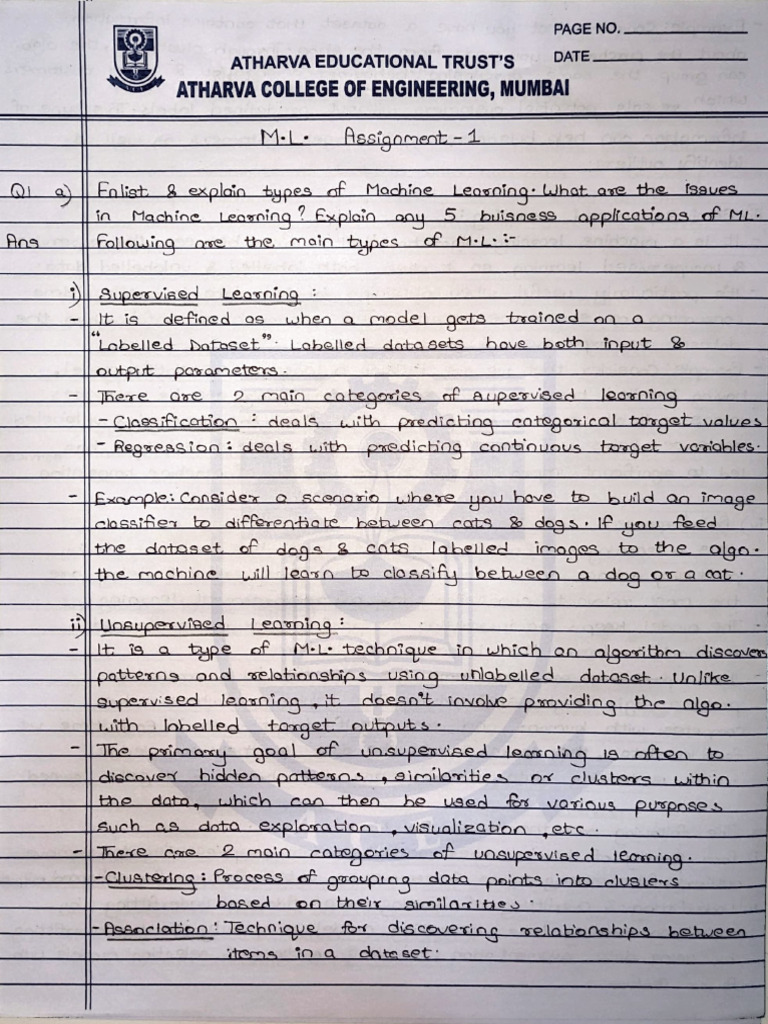 PAGE NO.
DATE
ATHARVA EDUCATIONAL TRUST'S
ATHARVA COLLEGE OF ENGINEERING, MUMBAI
M.L. Assignment - 1
Q1 a) Enlist & explain types of Machine Learning. What are the issues
in Machine Learning? Explain any 5 buisness applications of ML.
Ans Following are the main types of M.L. :-
i) Supervised Learning :
- It is defined as when a model gets trained on a
"Labelled Dataset". Labelled datasets have both input &
output parameters.
- There are 2 main categories of supervised learning
- Classification : deals with predicting categorical target values
- Regression : deals with predicting continuous target variables.
- Example: Consider a scenario where you have to build an image
classifier to differentiate between cats & dogs. If you feed
the dataset of dogs & cats labelled images to the algo.
the machine will learn to classify between a dog or a cat.
ii) Unsupervised Learning :
- It is a type of M.L. technique in which an algorithm discovers
patterns and relationships using unlabelled dataset. Unlike
supervised learning, it doesn't involve providing the algo.
with labelled target outputs.
- The primary goal of unsupervised learning is often to
discover hidden patterns, similarities or clusters within
the data, which can then be used for various purposes
such as data exploration, visualization, etc.
- There are 2 main categories of unsupervised learning.
- Clustering : Process of grouping data points into clusters
based on their similarities.
- Association : Technique for discovering relationships between
items in a dataset.